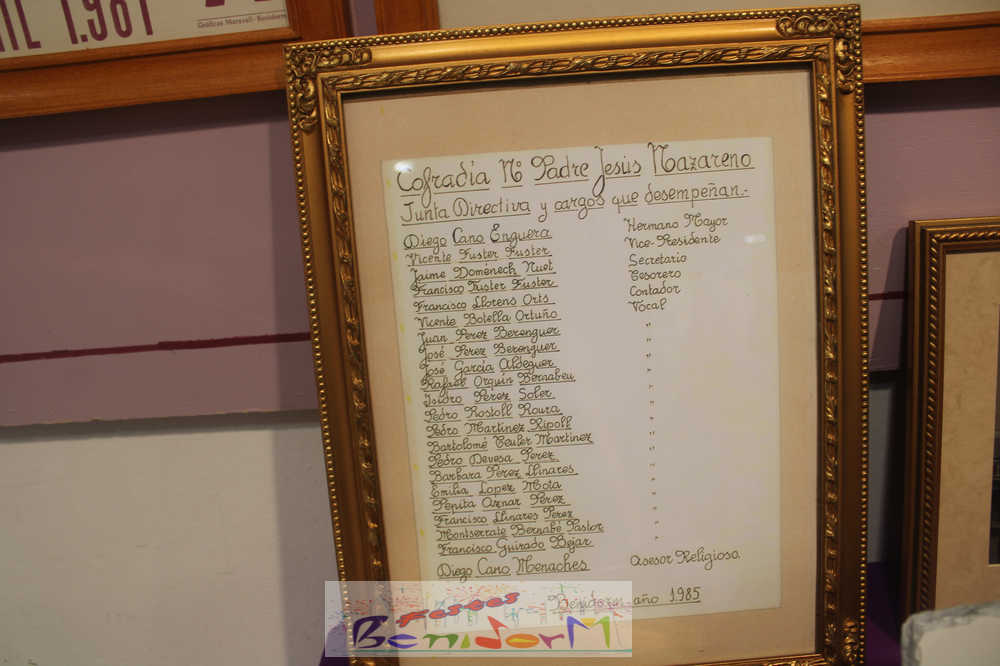 1.981
Gráficas Maravall - Benidorm
Cofradía Nº Padre Jesús Nazareno
Junta Directiva y cargos que desempeñan.-
Diego Cano Enguera Hermano Mayor
Vicente Fuster Fuster Vice-Presidente
Jaime Doménech Nuet Secretario
Francisco Fuster Fuster Tesorero
Francisco Llorens Orts Contador
Vicente Botella Ortuño Vocal
Juan Perez Berenguer "
José Perez Berenguer "
José García Aldeguer "
Rafael Orquín Bernabeu "
Isidro Pérez Soler "
Pedro Rostoll Roura "
Pedro Martínez Ripoll "
Bartolomé Teuler Martínez "
Pedro Devesa Perez "
Barbara Perez Llinares "
Emilia Lopez Mota "
Pepita Aznar Perez "
Francisco Llinares Perez "
Montserrate Bernabé Pastor "
Francisco Guirado Bejar "
Diego Cano Menaches Asesor Religioso
Benidorm año 1.985
Festes
BenidorM